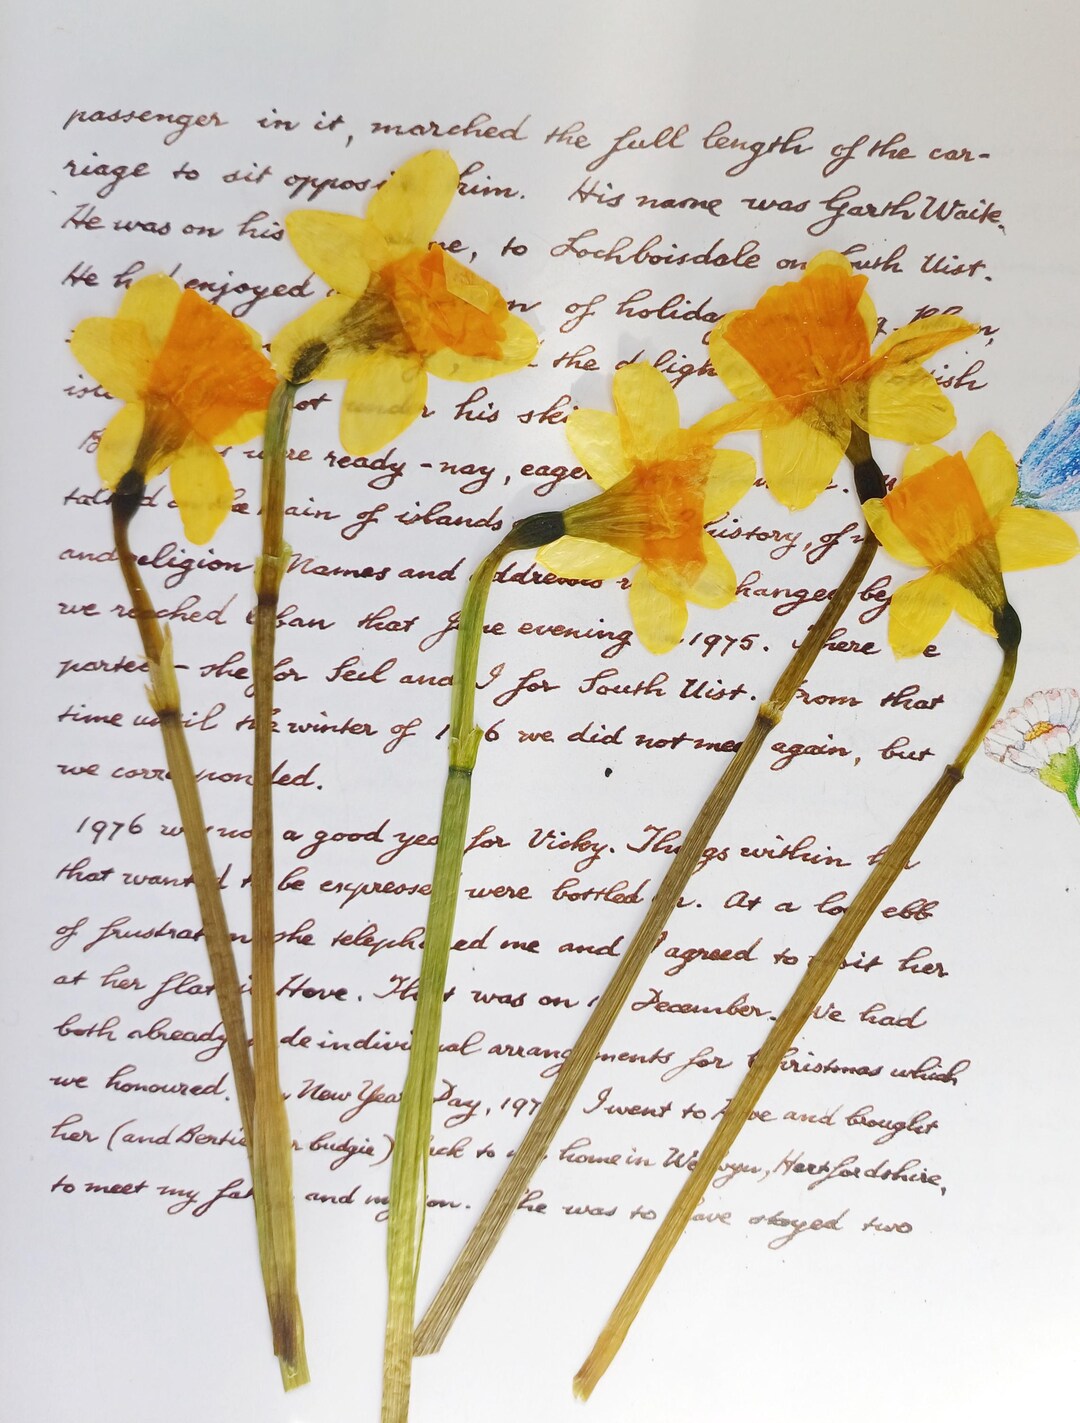 passenger in it, marched the full length of the car-
riage to sit opposi him. His name was Garth Waite.
He was on his ne, to Lochboisdale on South Uist.
He had enjoyed of holiday
the delight Scottish
not under his ski
were ready - nay, eager
talked on the chain of islands history, of
and religion. Names and addresses changed by
we reached Oban that June evening 1975. There e
parted - she for Seil and I for South Uist. From that
time until the winter of 1976 we did not meet again, but
we corresponded.
1976 was not a good year for Vicky. Things within her
that wanted to be expressed were bottled in. At a low ebb
of frustration she telephoned me and I agreed to visit her
at her flat in Hove. That was on December. We had
both already made individual arrangements for Christmas which
we honoured. New Year Day, 197 I went to Hove and brought
her (and Bertie her budgie) back to my home in Welwyn, Hertfordshire,
to meet my father and my son. She was to have stayed two